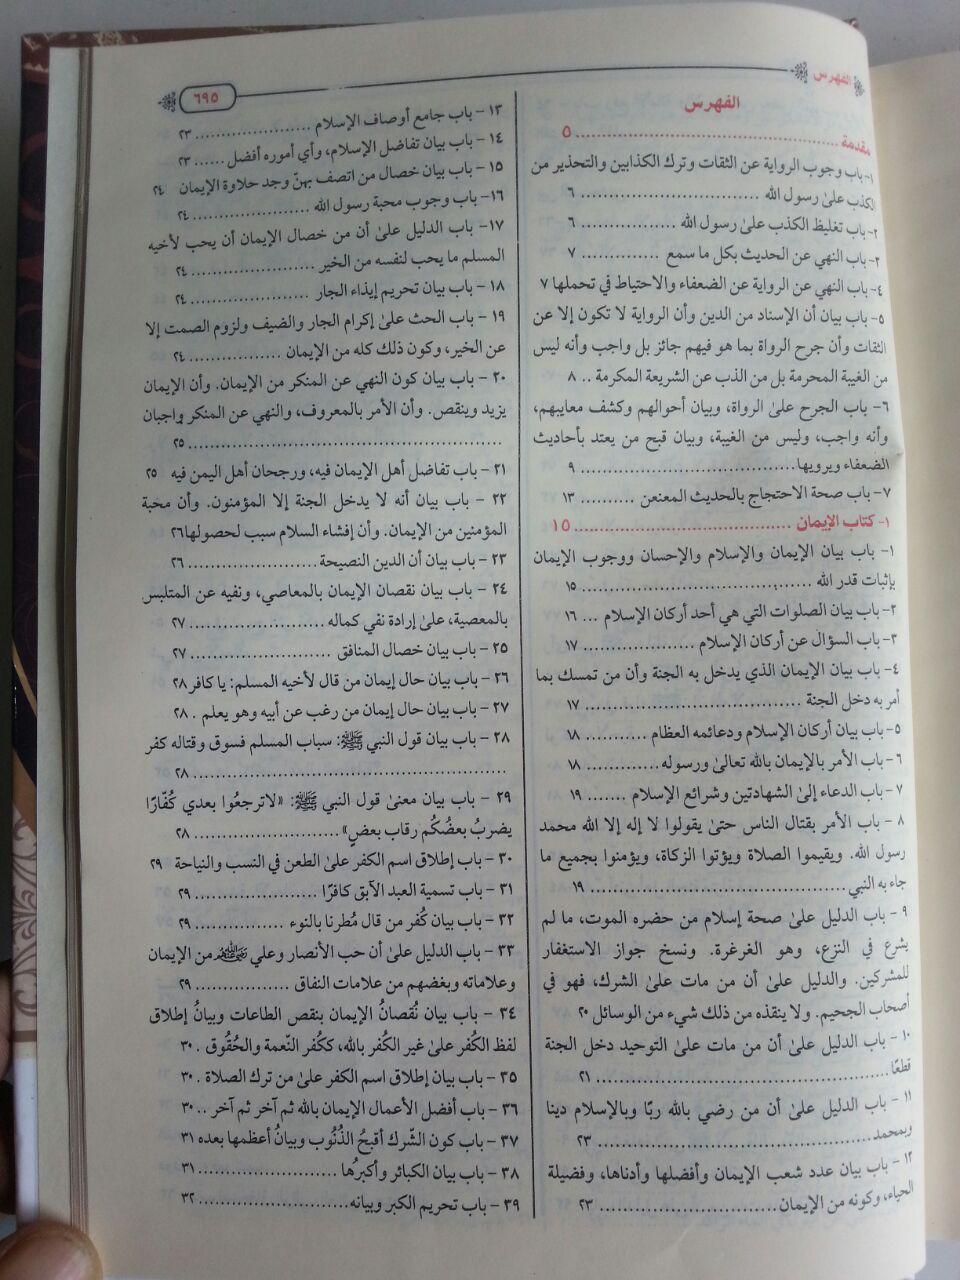 الفهرس
٦٩٥
الفهرس
مقدمة ........ ٥
١- باب وجوب الرواية عن الثقات وترك الكذابين والتحذير من
الكذب على رسول الله ........ ٦
٢- باب تغليظ الكذب على رسول الله ........ ٦
٣- باب النهي عن الحديث بكل ما سمع ........ ٧
٤- باب النهي عن الرواية عن الضعفاء والاحتياط في تحملها ٧
٥- باب بيان أن الإسناد من الدين وأن الرواية لا تكون إلا عن
الثقات وأن جرح الرواة بما هو فيهم جائز بل واجب وأنه ليس
من الغيبة المحرمة بل من الذب عن الشريعة المكرمة .. ٨
٦- باب الجرح على الرواة، وبيان أحوالهم وكشف معايبهم،
وأنه واجب، وليس من الغيبة، وبيان قبح من يعتد بأحاديث
الضعفاء ويرويها ........ ٩
٧- باب صحة الاحتجاج بالحديث المعنعن ........ ١٣
١- كتاب الإيمان ........ ١٥
١- باب بيان الإيمان والإسلام والإحسان ووجوب الإيمان
بإثبات قدر الله ........ ١٥
٢- باب بيان الصلوات التي هي أحد أركان الإسلام ... ١٦
٣- باب السؤال عن أركان الإسلام ........ ١٧
٤- باب بيان الإيمان الذي يدخل به الجنة وأن من تمسك بما
أمر به دخل الجنة ........ ١٧
٥- باب بيان أركان الإسلام ودعائمه العظام ........ ١٨
٦- باب الأمر بالإيمان بالله تعالى ورسوله ........ ١٨
٧- باب الدعاء إلى الشهادتين وشرائع الإسلام ....... ١٩
٨- باب الأمر بقتال الناس حتى يقولوا لا إله إلا الله محمد
رسول الله. ويقيموا الصلاة ويؤتوا الزكاة، ويؤمنوا بجميع ما
جاء به النبي ........ ١٩
٩- باب الدليل على صحة إسلام من حضره الموت، ما لم
يشرع في النزع، وهو الغرغرة. ونسخ جواز الاستغفار
للمشركين. والدليل على أن من مات على الشرك، فهو في
أصحاب الجحيم. ولا ينقذه من ذلك شيء من الوسائل ٢٠
١٠- باب الدليل على أن من مات على التوحيد دخل الجنة
قطعًا ........ ٢١
١١- باب الدليل على أن من رضي بالله ربًا وبالإسلام دينا
وبمحمد ........ ٢٣
١٢- باب بيان عدد شعب الإيمان وأفضلها وأدناها، وفضيلة
الحياء، وكونه من الإيمان ........ ٢٣
١٣- باب جامع أوصاف الإسلام ........ ٢٣
١٤- باب بيان تفاضل الإسلام، وأي أموره أفضل ...... ٢٣
١٥- باب بيان خصال من اتصف بهنّ وجد حلاوة الإيمان ٢٤
١٦- باب وجوب محبة رسول الله ........ ٢٤
١٧- باب الدليل على أن من خصال الإيمان أن يحب لأخيه
المسلم ما يحب لنفسه من الخير ........ ٢٤
١٨- باب بيان تحريم إيذاء الجار ........ ٢٤
١٩- باب الحث على إكرام الجار والضيف ولزوم الصمت إلا
عن الخير، وكون ذلك كله من الإيمان ........ ٢٤
٢٠- باب بيان كون النهي عن المنكر من الإيمان. وأن الإيمان
يزيد وينقص. وأن الأمر بالمعروف، والنهي عن المنكر واجبان
........ ٢٥
٢١- باب تفاضل أهل الإيمان فيه، ورجحان أهل اليمن فيه ٢٥
٢٢- باب بيان أنه لا يدخل الجنة إلا المؤمنون. وأن محبة
المؤمنين من الإيمان. وأن إفشاء السلام سبب لحصولها ٢٦
٢٣- باب بيان أن الدين النصيحة ........ ٢٦
٢٤- باب بيان نقصان الإيمان بالمعاصي، ونفيه عن المتلبس
بالمعصية، على إرادة نفي كماله ........ ٢٧
٢٥- باب بيان خصال المنافق ........ ٢٧
٢٦- باب بيان حال إيمان من قال لأخيه المسلم: يا كافر ٢٨
٢٧- باب بيان حال إيمان من رغب عن أبيه وهو يعلم . ٢٨
٢٨- باب بيان قول النبي ﷺ: سباب المسلم فسوق وقتاله كفر
........ ٢٨
٢٩- باب بيان معنى قول النبي ﷺ: «لا ترجعُوا بعدي كُفّارًا
يضربُ بعضُكُم رقاب بعضٍ» ........ ٢٨
٣٠- باب إطلاق اسم الكفر على الطعن في النسب والنياحة ٢٩
٣١- باب تسمية العبد الآبق كافرًا ........ ٢٩
٣٢- باب بيان كُفر من قال مُطرنا بالنوء ........ ٢٩
٣٣- باب الدليل على أن حب الأنصار وعلي من الإيمان
وعلاماته وبغضهم من علامات النفاق ........ ٢٩
٣٤- باب بيان نُقصانُ الإيمان بنقص الطاعات وبيانُ إطلاق
لفظ الكُفر على غير الكُفر بالله، ككُفر النّعمة والحُقُوق . ٣٠
٣٥- باب بيان إطلاق اسم الكفر على من ترك الصلاة . ٣٠
٣٦- باب أفضل الأعمال الإيمان بالله ثم آخر ثم آخر .. ٣٠
٣٧- باب كون الشّرك أقبحُ الذُنُوب وبيانُ أعظمها بعده ٣١
٣٨- باب بيان الكبائر وأكبرُها ........ ٣١
٣٩- باب تحريم الكبر وبيانه ........ ٣٢